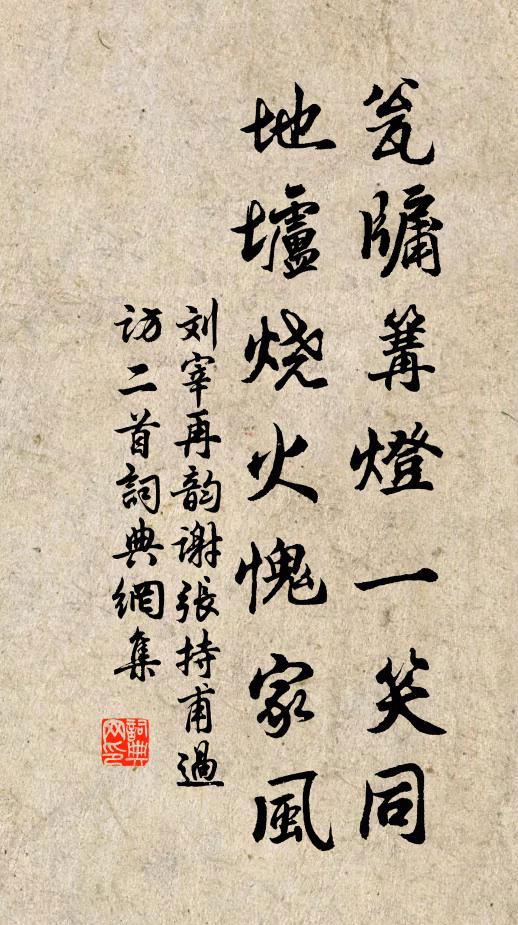 瓮牖篝燈一笑同
地壚烧火愧家風
刘宰再韵谢張持甫過
访二首詞典網集
詞典
网印